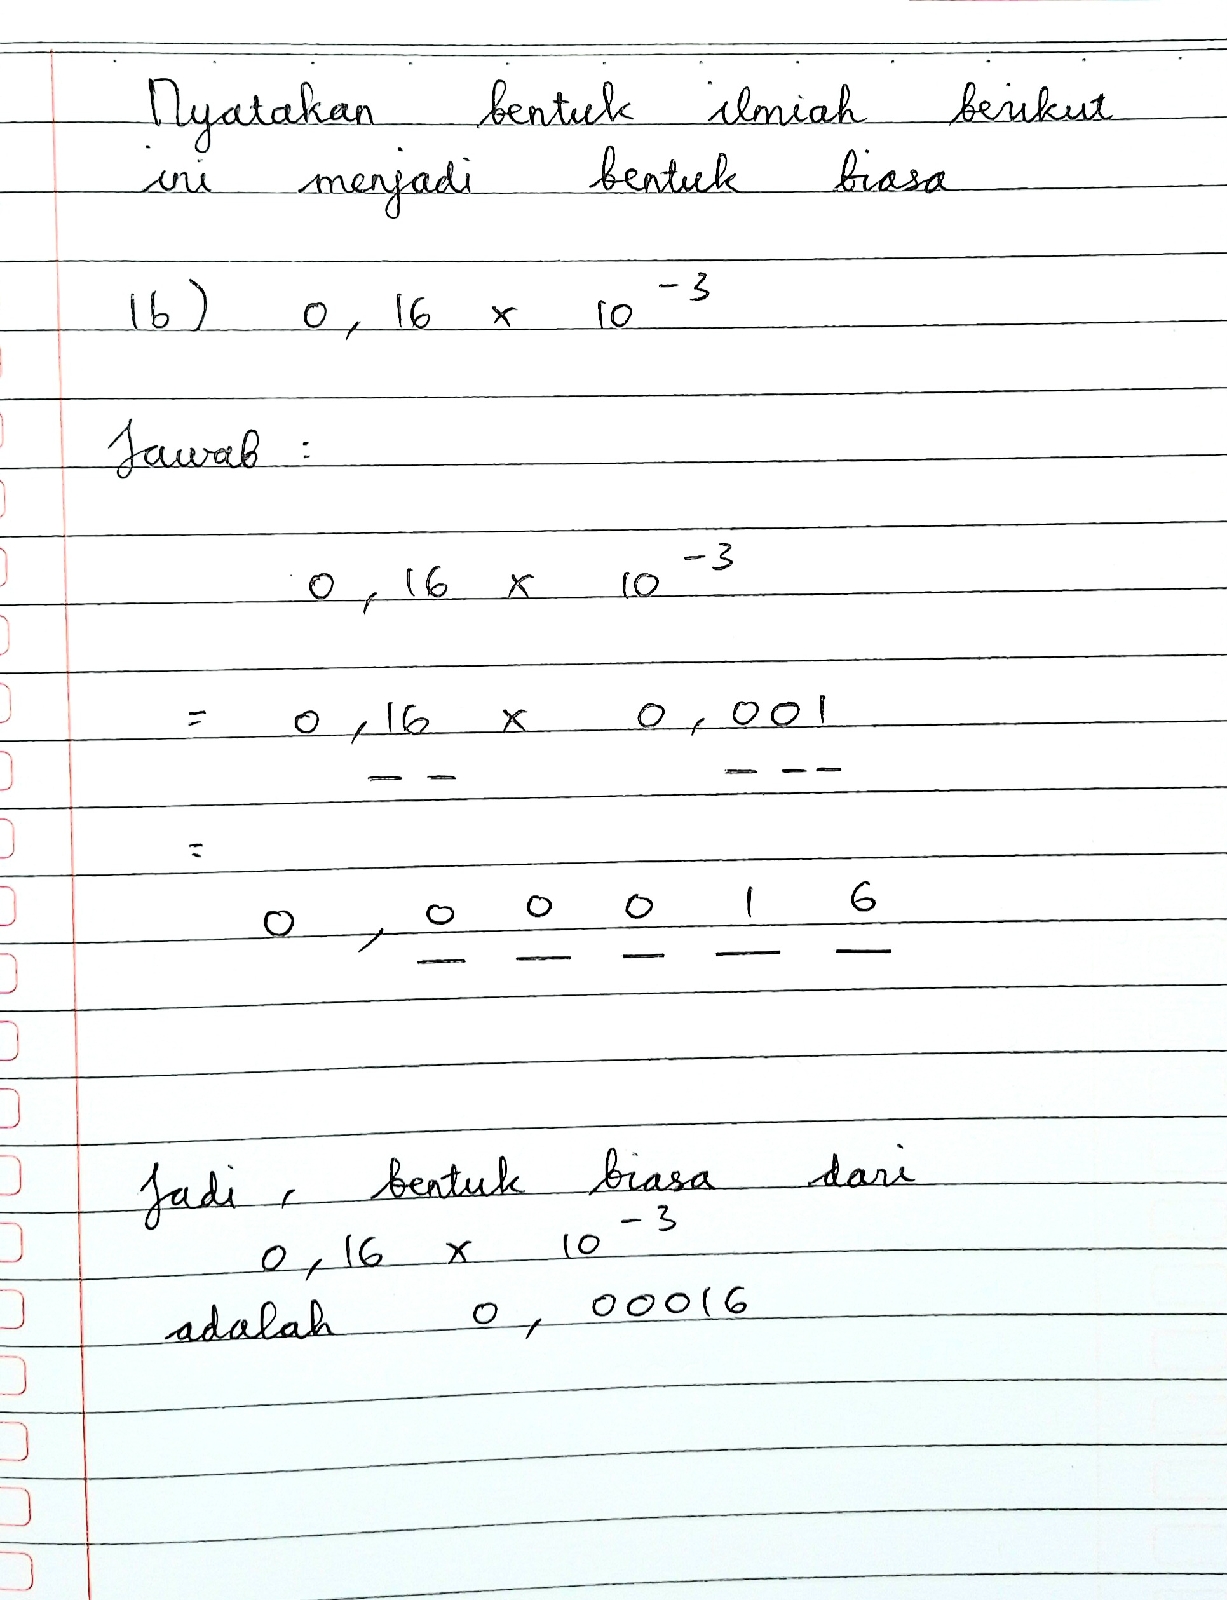 Nyatakan bentuk ilmiah berikut
ini menjadi bentuk biasa
16) 0,16 x 10⁻³
Jawab :
0,16 x 10⁻³
= 0,16 x 0,001
=
0,00016
Jadi, bentuk biasa dari
0,16 x 10⁻³
adalah 0,00016